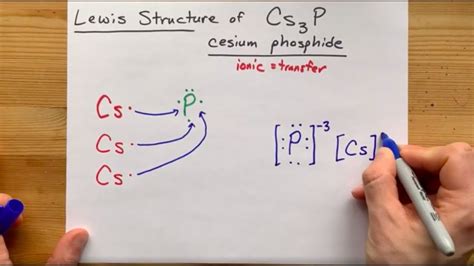 Lewis Structure of Cs₃P
cesium phosphide
ionic = transfer
Cs· ·P̈·
Cs·
Cs·
[:P̈:]⁻³ [Cs]